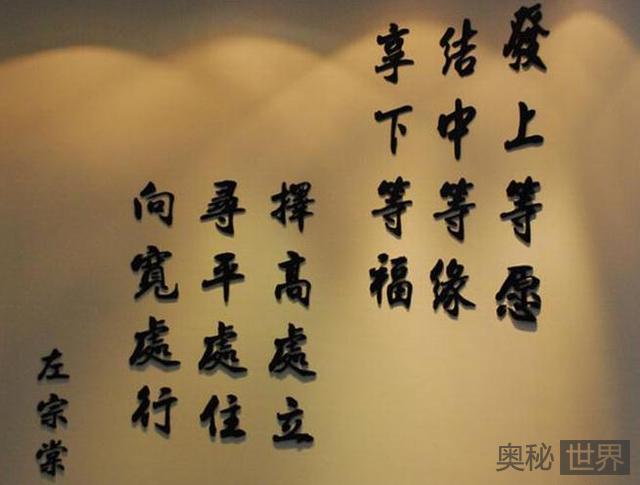 發上等愿
結中等緣
享下等福
擇高處立
尋平處住
向寬處行
左宗棠
奥秘世界